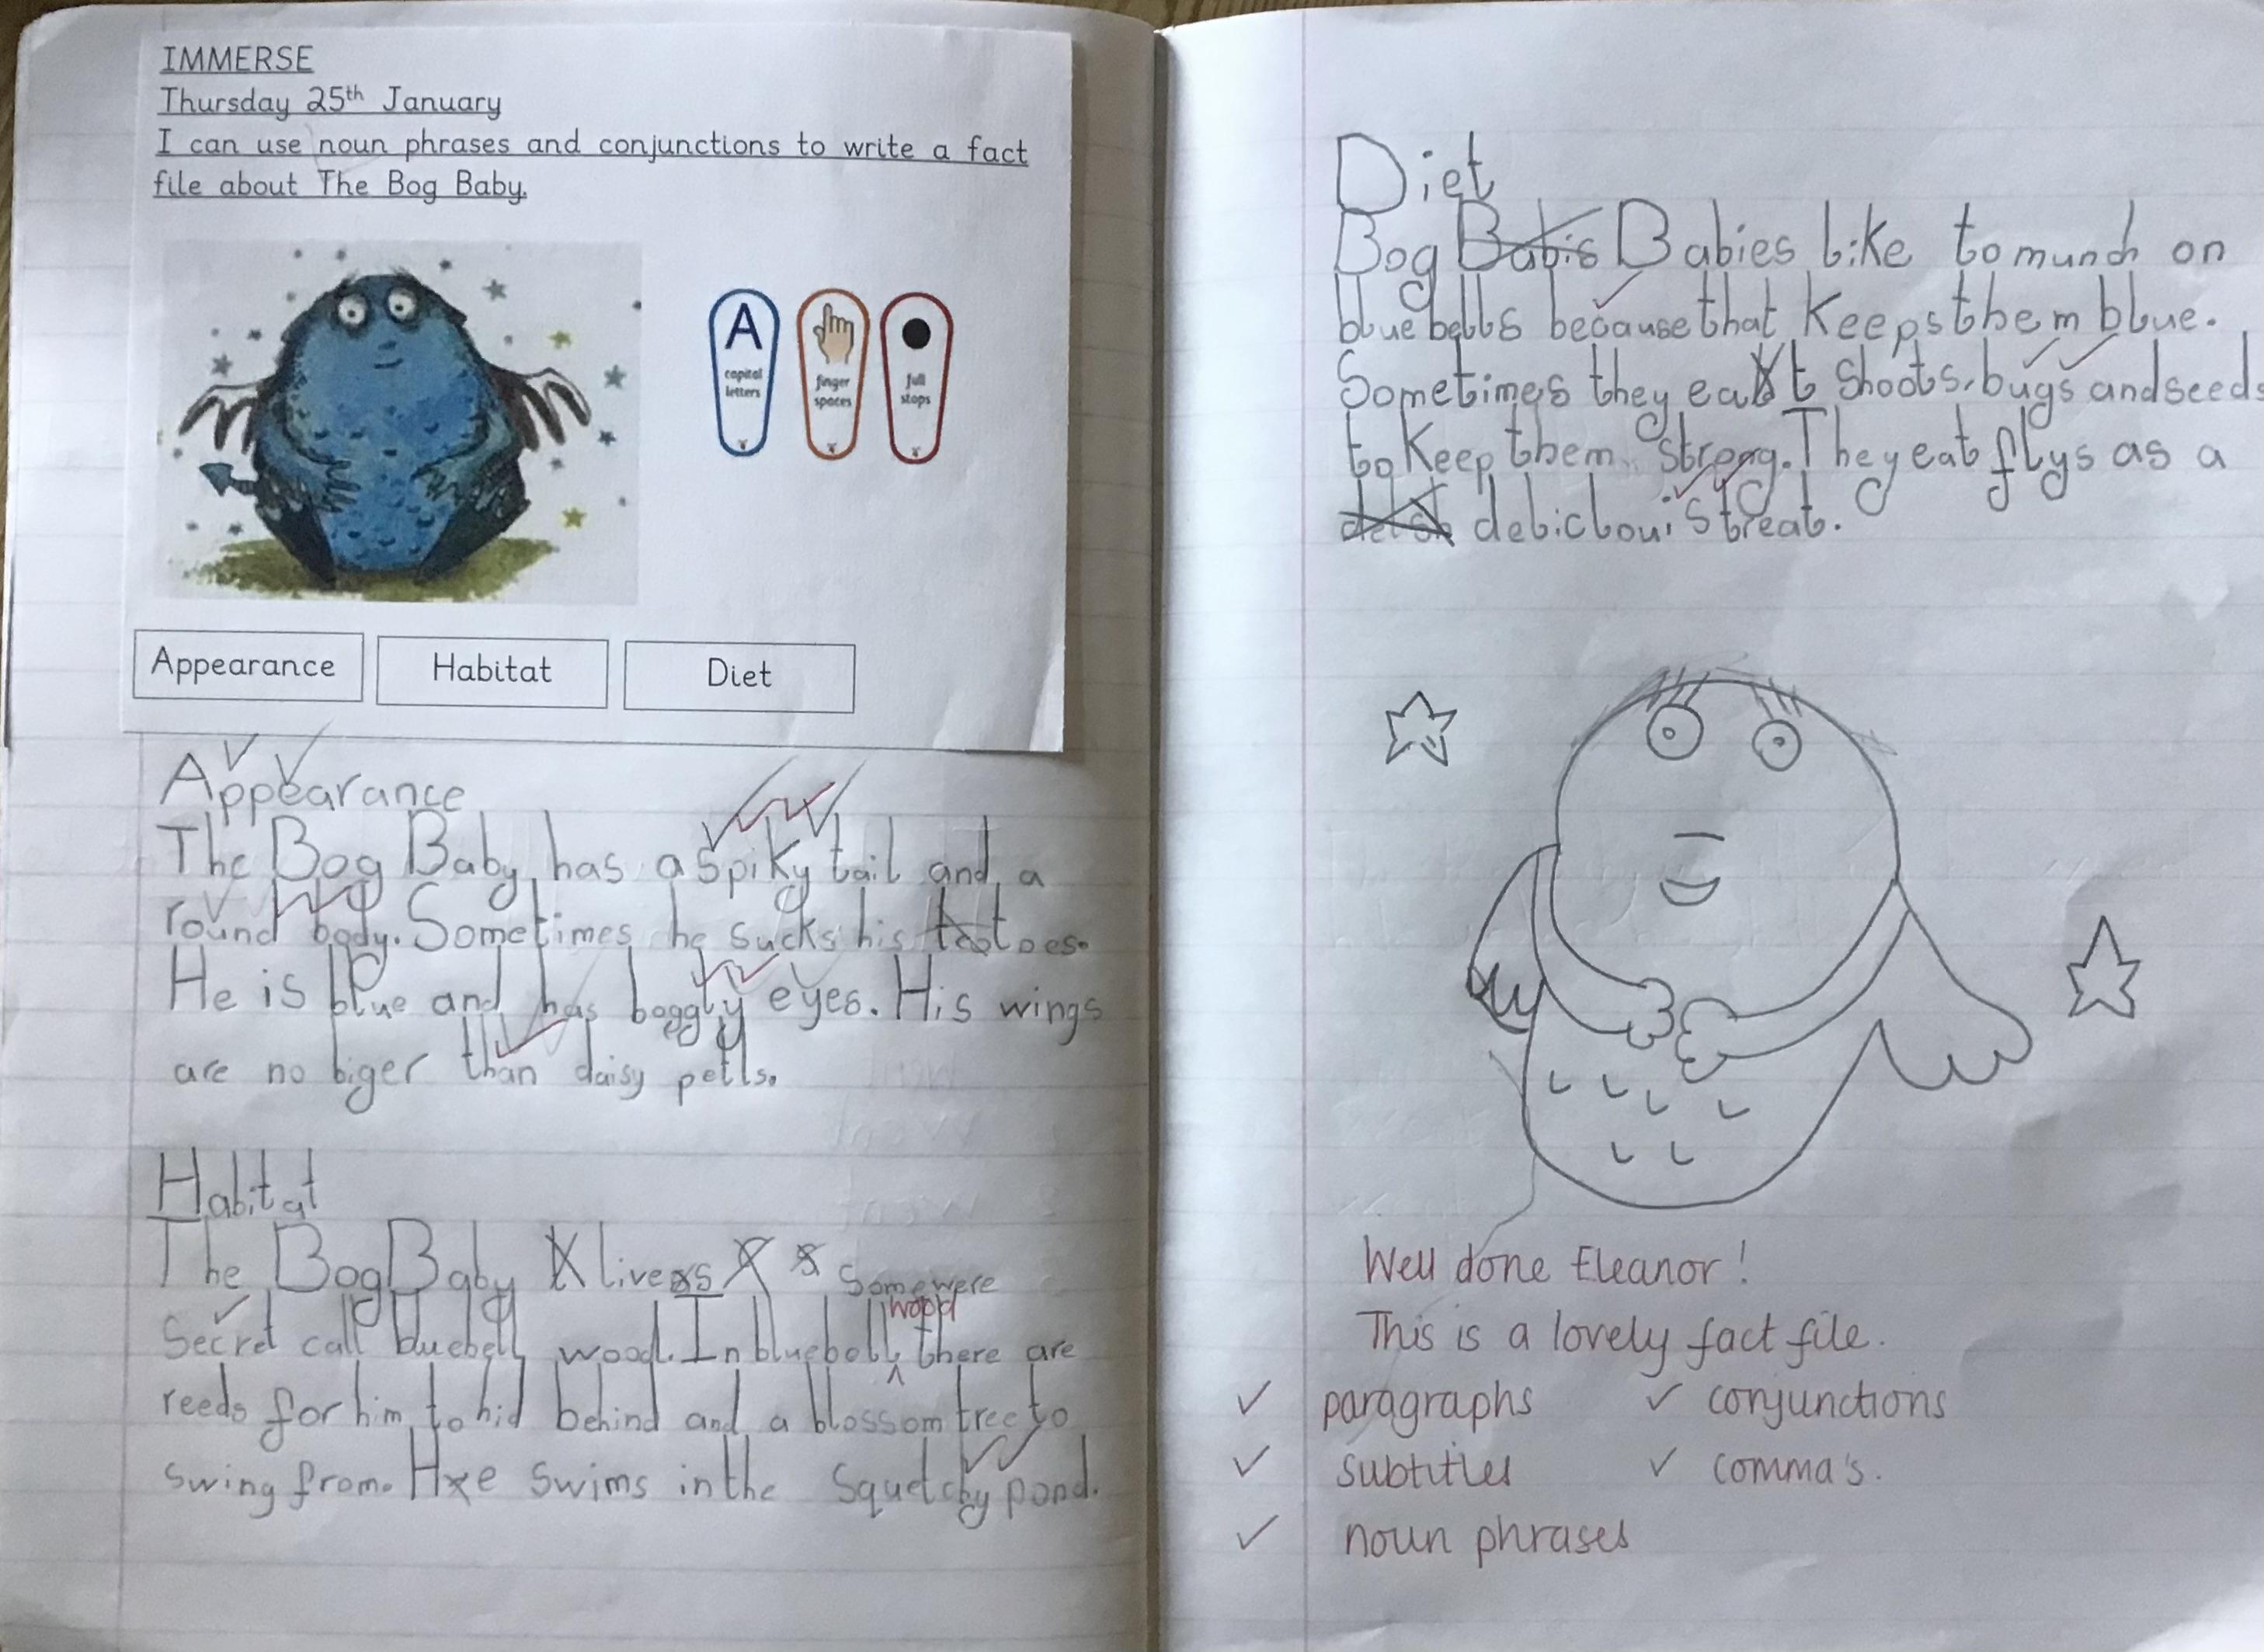 IMMERSE
Thursday 25th January
I can use noun phrases and conjunctions to write a fact
file about The Bog Baby.
A
capital
letters
finger
spaces
full
stops
Appearance
Habitat
Diet
Appearance
The Bog Baby has a spiky tail and a
round body. Sometimes he sucks his toes.
He is blue and has boggly eyes. His wings
are no biger than daisy petls.
Habitat
The Bog Baby lives somewere
secret call bluebell wood. In bluebell wood there are
reeds for him to hid behind and a blossom tree to
swing from. He swims in the squelchy pond.
Diet
Bog Babis Babies like to munch on
blue bells because that keeps them blue.
Sometimes they eat shoots, bugs and seeds
to keep them strong. They eat flys as a
delicloui s treat.
Well done Eleanor!
This is a lovely fact file.
✓ paragraphs ✓ conjunctions
✓ subtitles ✓ comma's.
✓ noun phrases